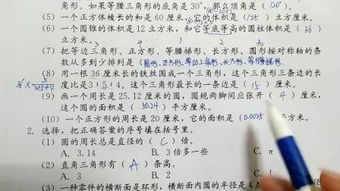 角形。如果等腰三角形的底角是30°,那么顶角是(120°)。
(5) 一个正方体棱长的和是60厘米,它的体积是(125)立方厘米。
(6) 一个圆锥的体积是12立方米,和它等底等高的圆柱体积是(36)
立方米。
(7) 把等边三角形、正方形、等腰梯形、长方形、圆形按对称轴的条
数从多到少排列是(
(8) 用一根36厘米长的铁丝围成一个三角形,这个三角形三条边的长
度比是3:5:4。这个三角形最长的一条边是(15)厘米。
(9) 画一个周长是25.12厘米的圆,圆规两脚间应张开(4)厘米,
这个圆的面积是(50.24)平方厘米。
(10) 一个正方形的周长是20厘米,它的面积是(0.0025
2. 选择,把正确答案的序号填在括号里。
(1) 圆的周长总是直径的(C)倍。
A. 3.14 B. 3倍多一些 C. π
(2) 直角三角形有(A)条高。
A. 3 B. 2 C.
(3) 一种零件的横断面是环形,横断面内圆的半径是4